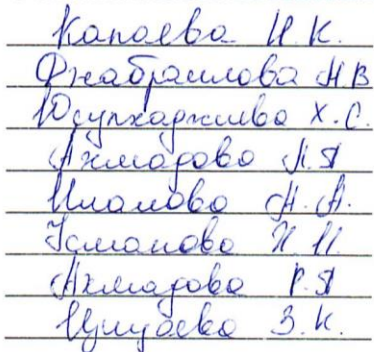 Капаева И.К.
Джабраилова М.В
Юсупхаджиева Х.С.
Ахмадова Л.Я
Исмаилова А.А.
Усманова И.И.
Ахмадова Р.Я
Цуцаева З.К.